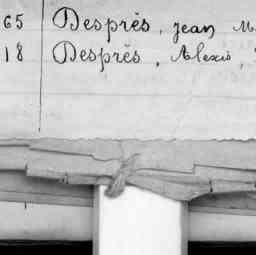 65 Desprès, Jean
18 Desprès, Alexis,